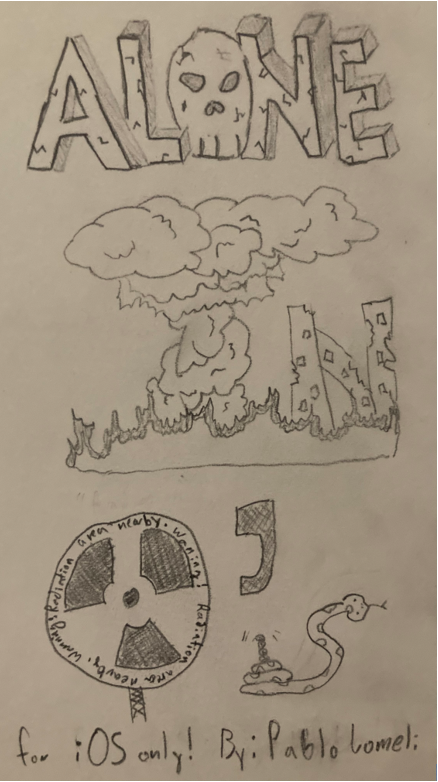 ALONE
IN
O'S
Warning! Radiation area nearby. Warning! Radiation area nearby.
for iOS only! By: Pablo Lomeli